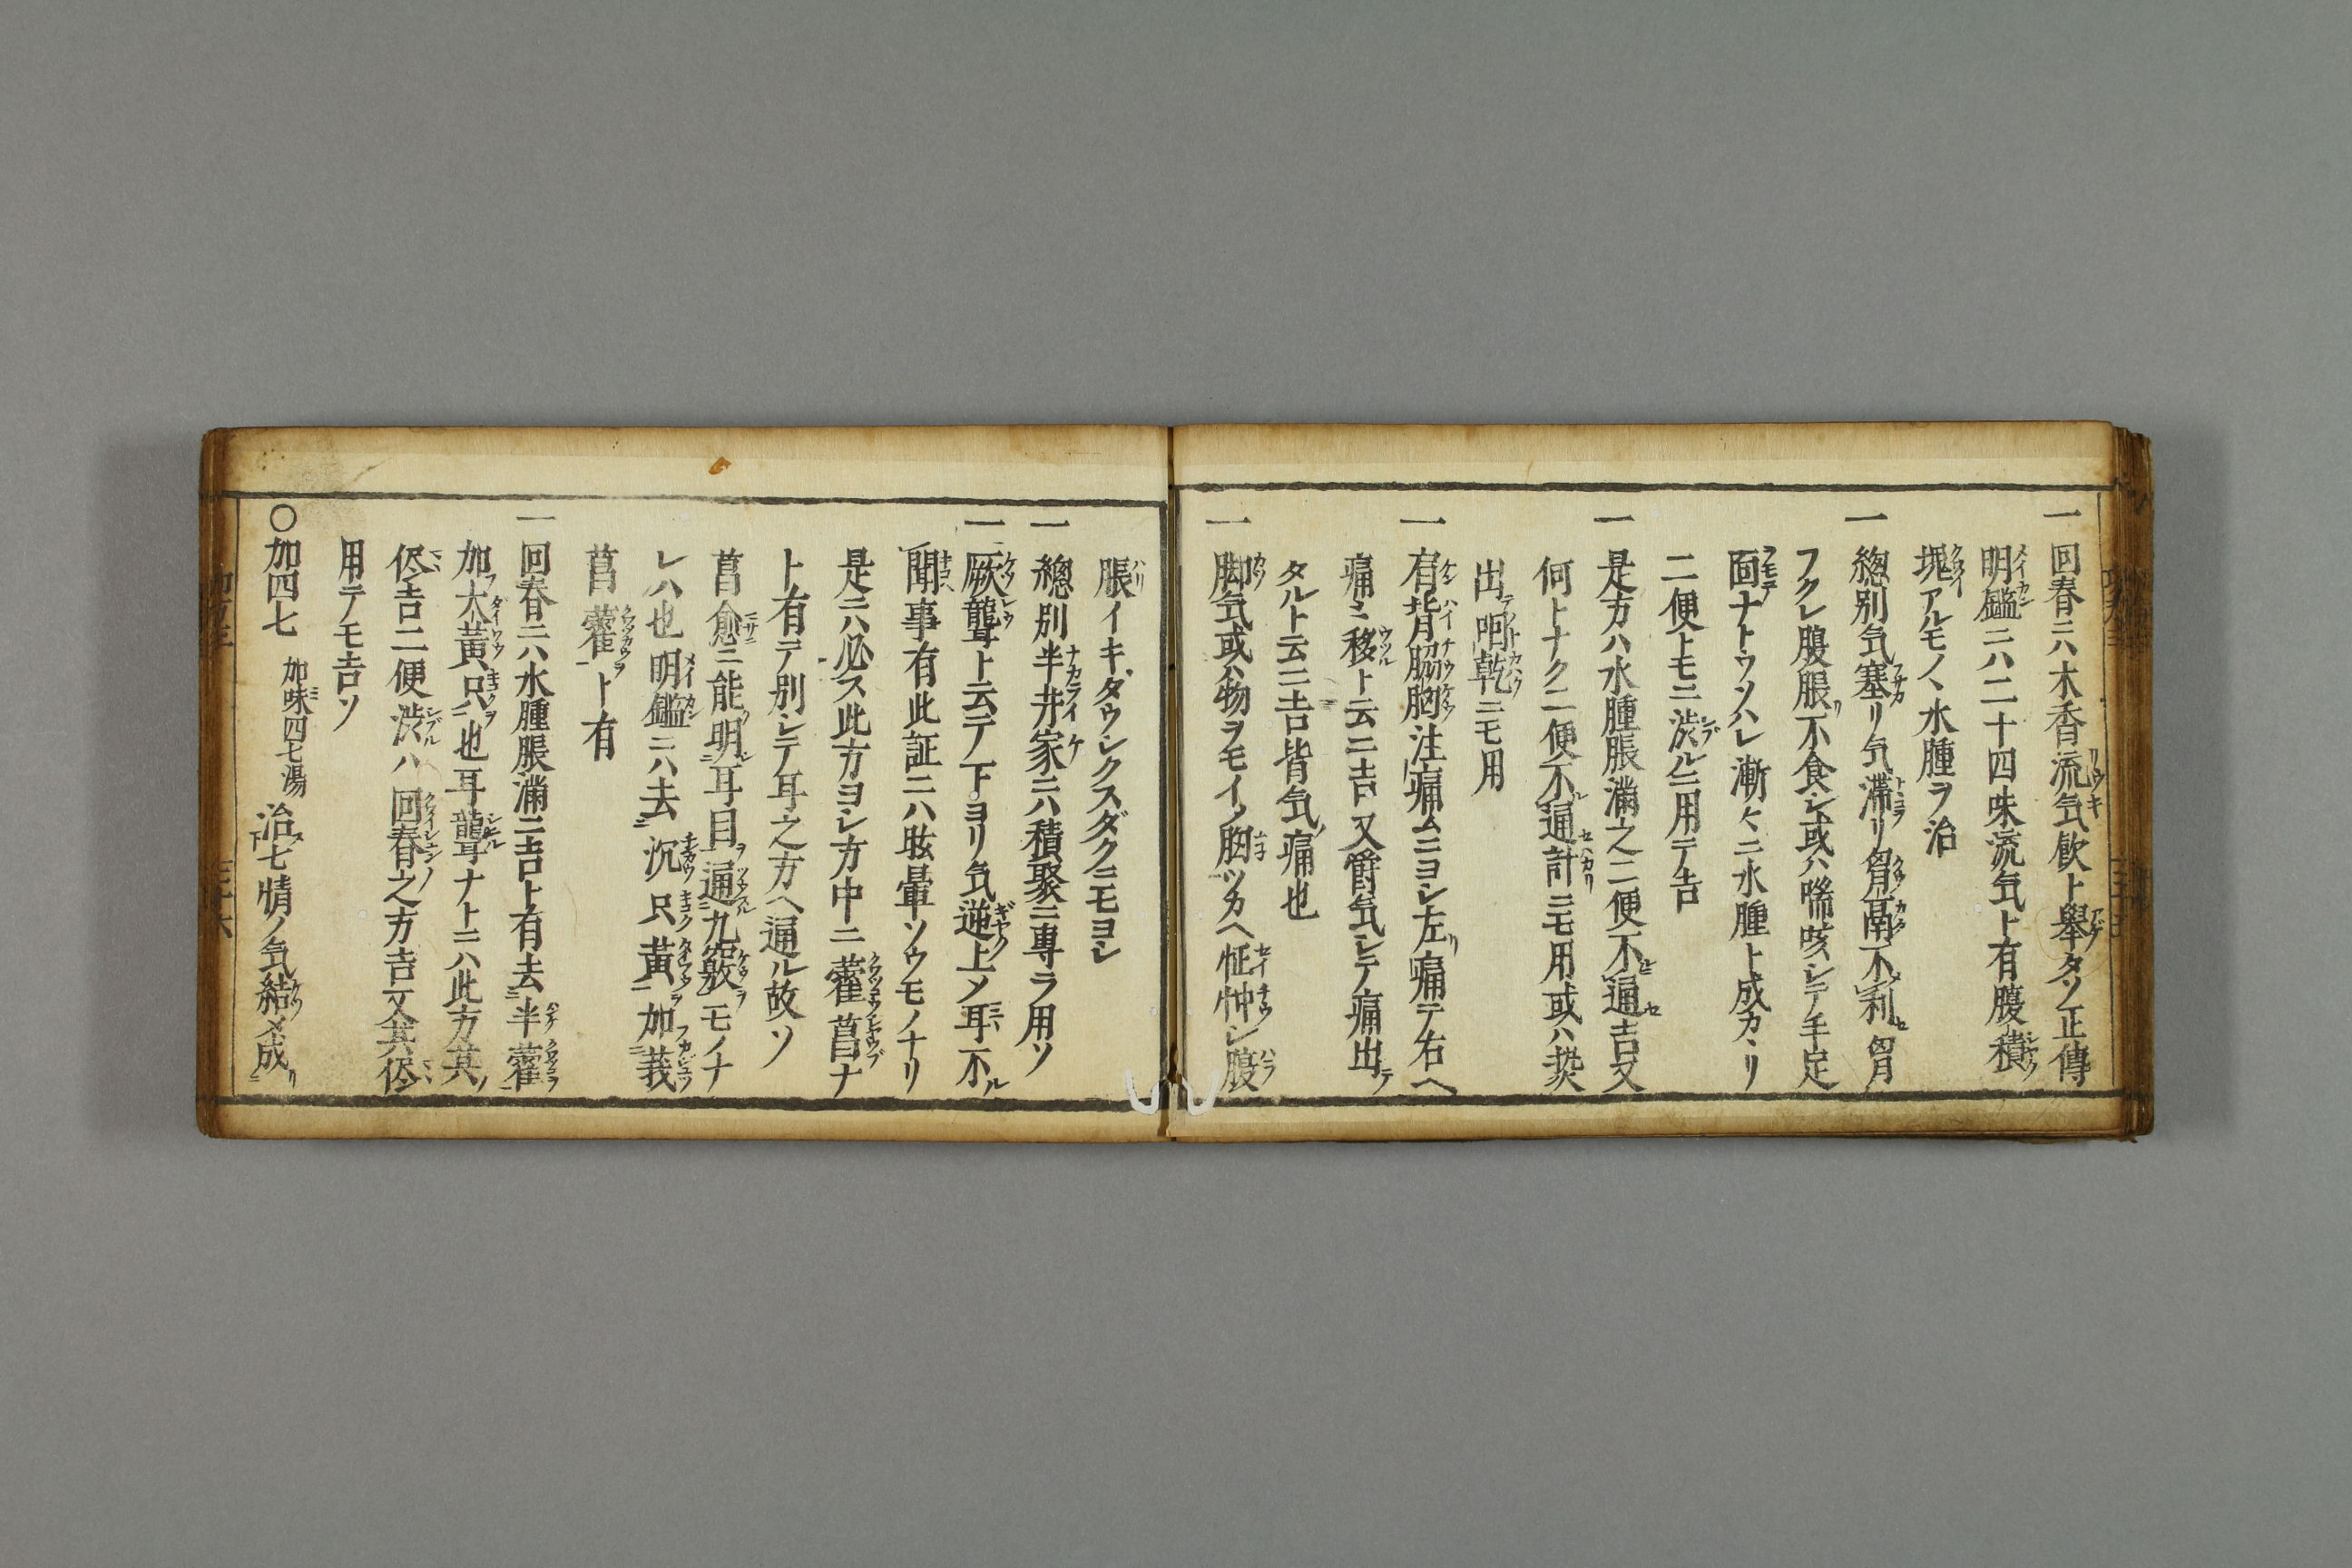 一回春ニハ木香流気飲ト擧タソ正傳
明鑑ニハ二十四味流気ト有腹積
塊アルモノヽ水腫ヲ治
一總別気塞リ気滞リ胷膈不利胷
フクレ腹脹不食シ或ハ喘咳シテ手足
面ナトウソハレ漸々ニ水腫ト成カヽリ
二便トモニ渋ルニ用テ吉
一是方ハ水腫脹滿之二便不通吉又
何トナク二便不通計ニモ用或ハ
出咽乾ニモ用
一肩背脇胸注痛ムニヨシ左痛テ右ヘ
痛ミ移ト云ニ吉又欝気シテ痛出
タルト云ニ吉皆気痛也
一脚気或ハ物ヲモイノ胸ツカヘ怔忡シ腹
脹イキダウシクスダクニモヨシ
一總別半井家ニハ積聚ニ専ラ用ソ
一厥聾ト云テ下ヨリ気逆上メ耳不
聞事有此証ニハ眩暈ソウモノナリ
是ニハ必ス此方ヨシ方中ニ藿菖ナ
ト有テ別シテ耳之方ヘ通ル故ソ
菖愈ニ能明耳目通九竅モノナ
レハ也明鑑ニハ去沉只黃加莪
菖藿ト有
一回春ニハ水腫脹滿ニ吉ト有去半藿
加大黃只也耳聾ナトニハ此方其
侭吉二便渋ハ回春之方吉又其侭
用テモ吉ソ
〇加四七 加味四七湯 治七情ノ気結メ成